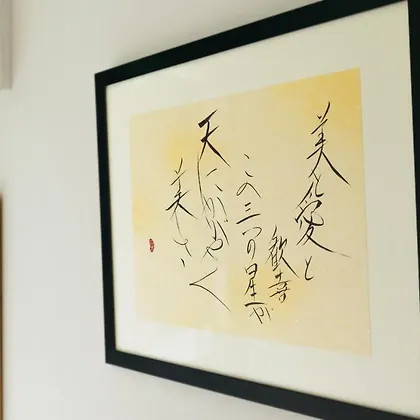 美と愛と
歓喜
この三つの星が
天にかゞやく
美しさ